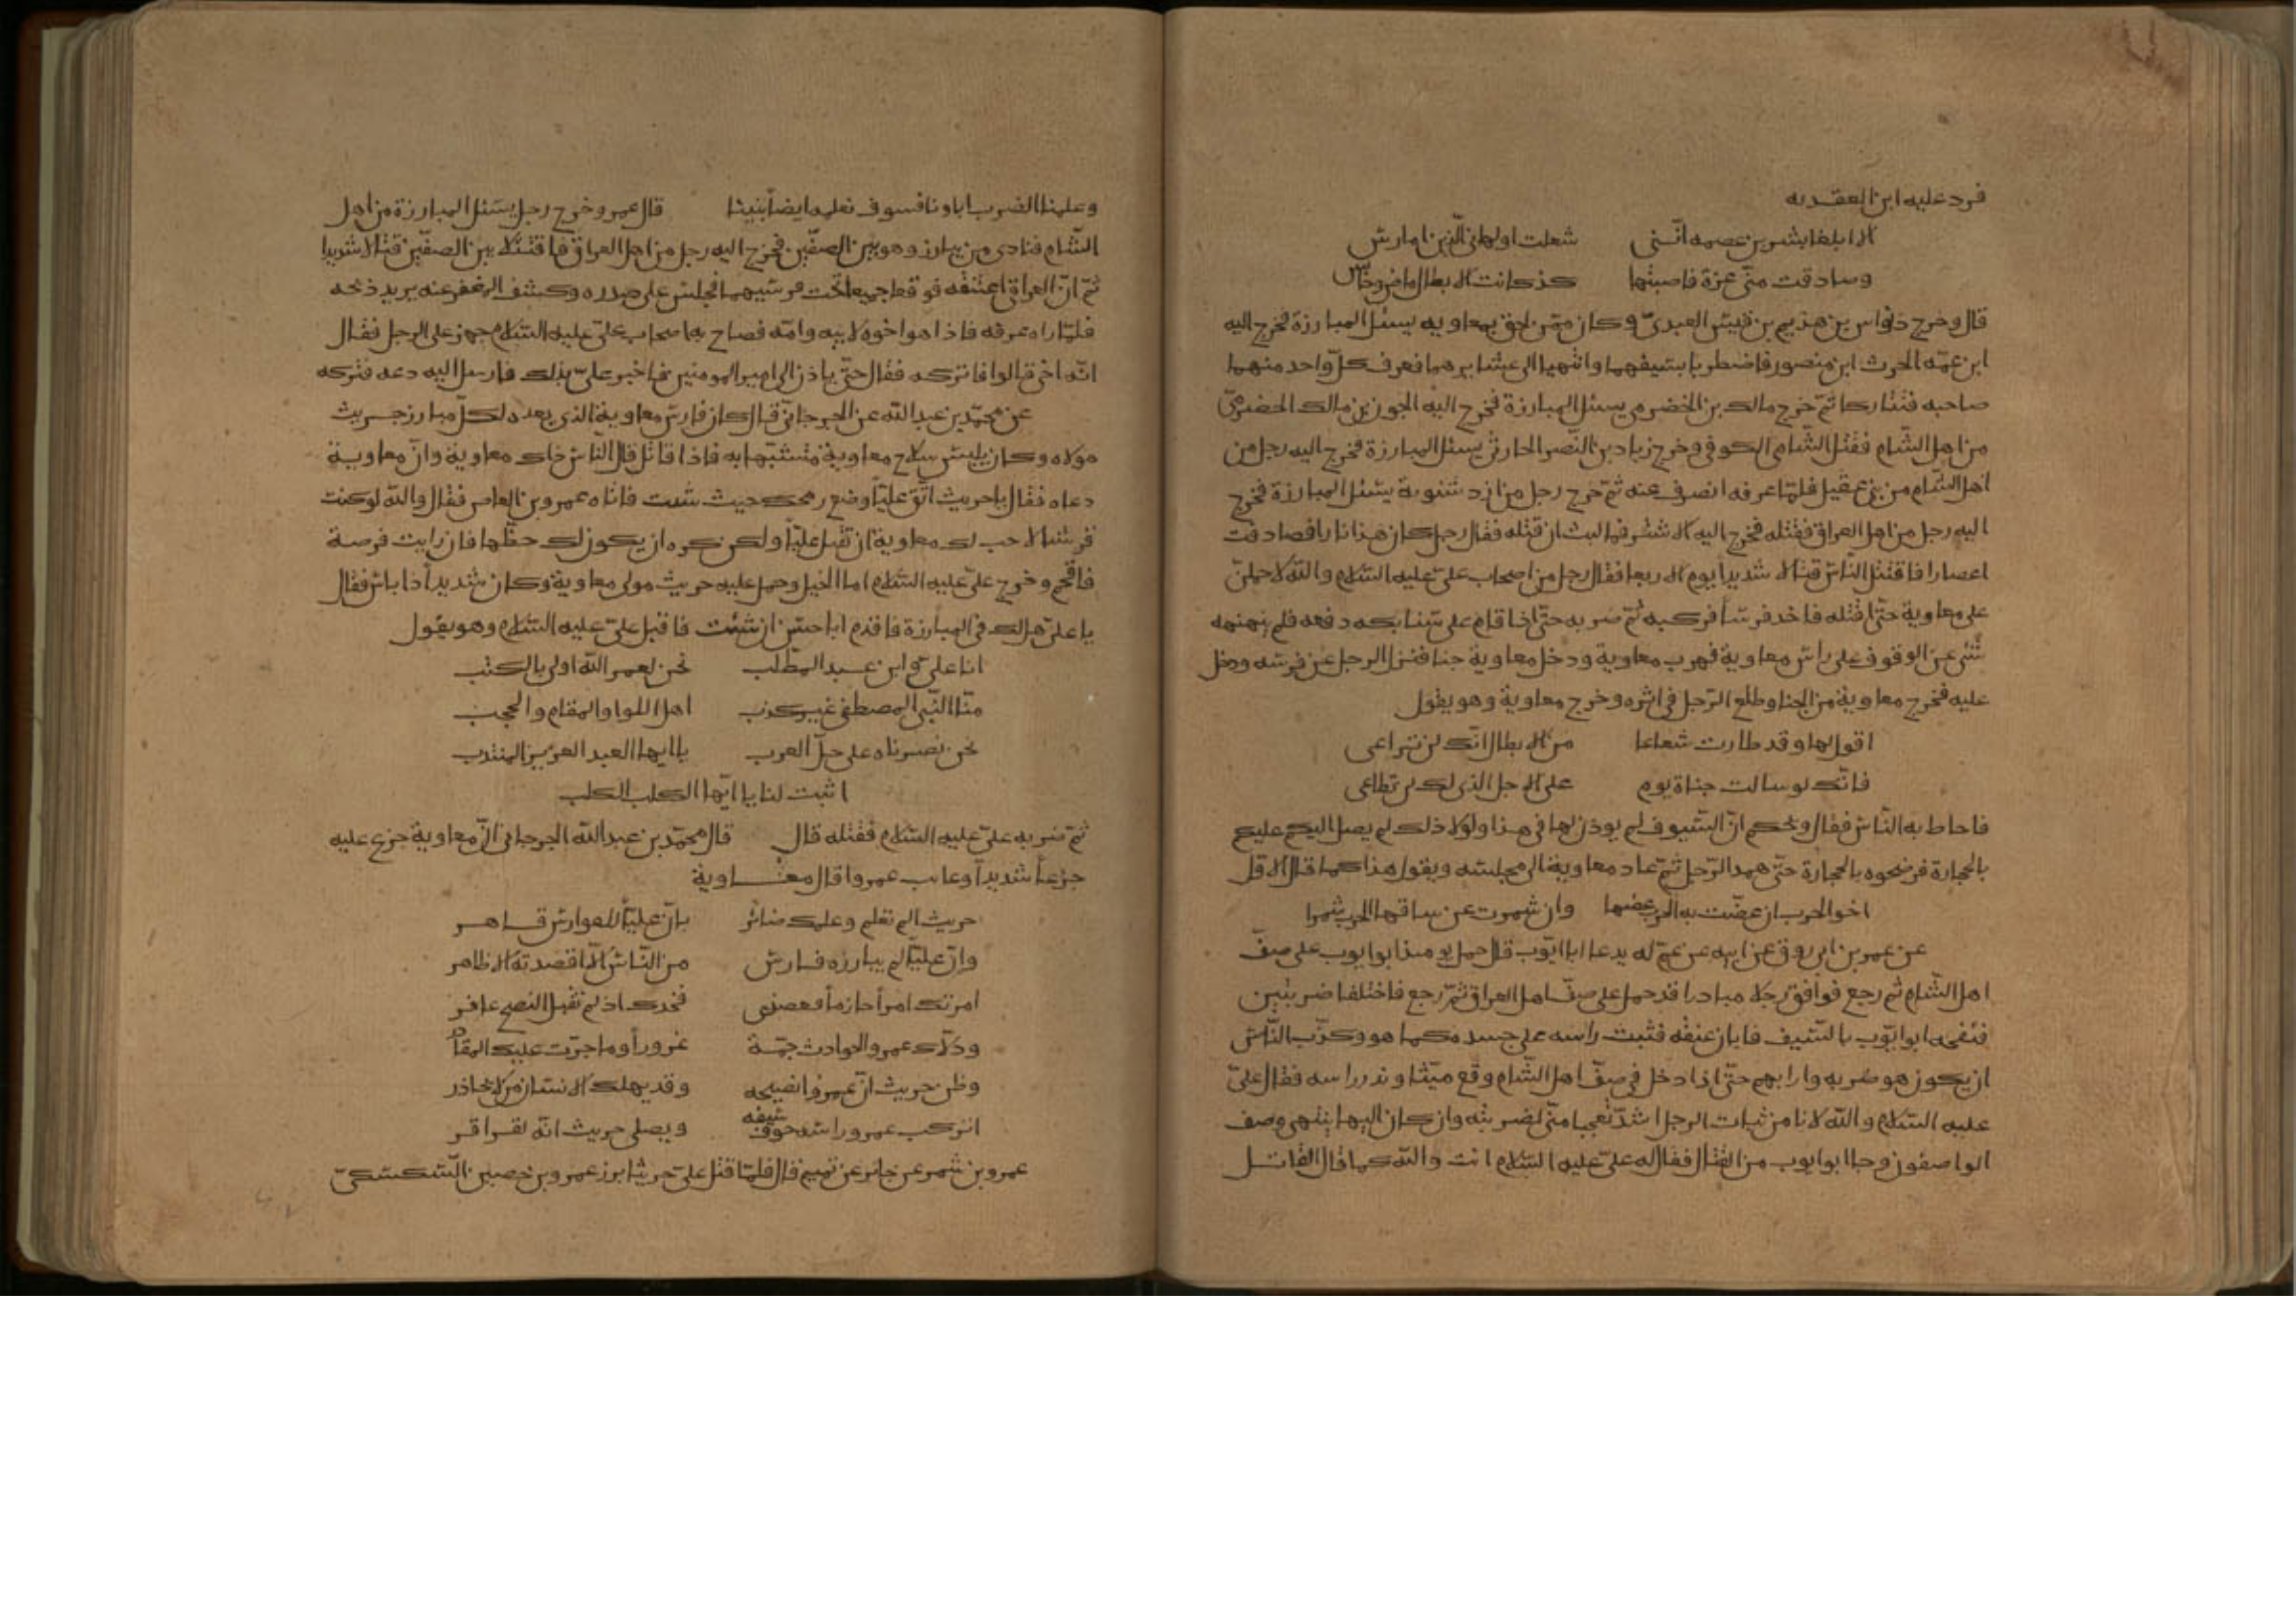 فرد عليه ابن العقديه
الا ابلغا بشر بن عصمه انني شغلت والهاني الذين امارس
وصادقت مني غرة فاصبتها كذكانت الابطال ماض وخالس
قال وخرج ذواس بن هذيم بن قيس العبدي وكان ممن لحق بمعاويه يسئل المبارزة فخرج اليه
ابن عمه الحرث ابن منصور فاضطربا بسيفهما وانتهيا الى عشايرهما فعرف كل واحد منهما
صاحبه فتتاركا ثم خرج مالك بن الخضرمي يسئل المبارزة فخرج اليه الجون بن مالك الحضرمي
من اهل الشام فقتل الشامي الكوفي وخرج زياد بن النضر الحارثي يسئل المبارزة فخرج اليه رجل من
اهل الشام من بني عقيل فلما عرفه انصرف عنه ثم خرج رجل من ازد شنوية يسئل المبارزة فخرج
اليه رجل من اهل العراق فقتله فخرج اليه الاشتر فما لبث ان قتله فقال رجل كان هذا نارا فصادفت
اعصارا فاقتتل الناس قتالا شديدا يوم الاربعا فقال رجل من اصحاب علي عليه السلام والله لاحملن
على معاوية حتى اقتله فاخذ فرسا فركبه ثم ضربه حتى اذا قام على سنابكه دفعه فلم ينهنهه
شئ عن الوقوف على راس معاوية فهرب معاوية ودخل معاوية خبا فنزل الرجل عن فرسه ودخل
عليه فخرج معاوية من الخبا وطلع الرجل في اثره وخرج معاوية وهو يقول
اقول لها وقد طارت شعاعا من الابطال انك لن تراعي
فانك لو سالت حياة يوم على الاجل الذي لك لن تطاعي
فاحاط به الناس فقال ويحكم ان السيوف لم يوذن لها في هذا ولولا ذلك لم يصل اليكم عليكم
بالحجارة فرضخوه بالحجارة حتى همد الرجل ثم عاد معاوية الى مجلسه ويقول هذا كما قال الاول
اخو الحرب ان عضت به الحرب عضها وان شمرت عن ساقها الحرب شمرا
عن عمر بن ابي روق عن ابيه عن عم له يدعا ابا ايوب قال حمل يومئذ ابو ايوب على صف
اهل الشام ثم رجع فوافق رجلا صادرا قد حمل على صف اهل العراق ثم رجع فاختلفا ضربتين
فنفحه ابو ايوب بالسيف فابان عنقه فثبت راسه على جسده كما هو وكذب الناس
ان يكون هو ضربه وارابهم حتى اذا دخل في صف اهل الشام وقع ميتا وندر راسه فقال علي
عليه السلام والله لانا من ثبات راس الرجل اشد تعجبا مني لضربته وان كان اليها ينتهي وصف
الواصفون وجا ابو ايوب من القتال فقال له علي عليه السلام انت والله كما قال القائل
وعلمنا الضرب اباونا فسوف نعلم ايضا بنينا قال عمر وخرج رجل يسئل المبارزة من اهل
الشام فنادى من يبارز وهو بين الصفين فخرج اليه رجل من اهل العراق فاقتتلا بين الصفين قتالا شديدا
ثم ان العراقي اعتنقه فوقعا جميعا تحت فرسيهما فجلس على صدره وكشف المغفر عنه يريد ذبحه
فلما راه عرفه فاذا هو اخوه لابيه وامه فصاح به اصحاب علي عليه السلام جهز على الرجل فقال
انه اخي قالوا فاتركه فقال حتى ياذن الى امير المومنين فاخبر علي بذلك فارسل اليه دعه فتركه
عن محمد بن عبدالله عن الجرجاني قال كان فارس معاوية الذي يعده لكل مبارز حريث
مولاه وكان يلبس سلاح معاوية متشبها به فاذا قاتل قال الناس ذاك معاوية وان معاوية
دعاه فقال يا حريث اتق عليا وضع رمحك حيث شئت فاتاه عمرو بن العاص فقال والله لو كنت
قرشيا لاحب لك معاوية ان تقتل عليا ولكن كره ان يكون لك حظها فان رايت فرصة
فاقحم وخرج علي عليه السلام امام الخيل وحمل عليه حريث مولى معاوية وكان شديدا ذا باس فقال
يا علي هل لك في المبارزة فاقدم ابا حسن ان شئت فاقبل علي عليه السلام وهو يقول
انا علي وابن عبد المطلب نحن لعمر الله اولى بالكتب
منا النبي المصطفى غير كذب اهل اللوا والمقام والحجب
نحن نصرناه على جل العرب يا ايها العبد الغرير المنتدب
اثبت لنا يا ايها الكلب الكلب
ثم ضربه علي عليه السلام فقتله قال قال محمد بن عبدالله الجرجاني ان معاوية جزع عليه
جزعا شديدا وعاتب عمروا قال معاوية
حريث الم تعلم وعلمك ضائر بان عليا للفوارس قاهر
وان عليا لم يبارزه فارس من الناس الا اقصدته الاظافر
امرتك امرا حازما فعصيتني فجدك اذ لم تقبل النصح عاثر
ودلاك عمرو والحوادث جمة غرورا وما جرت عليك المقادر
وظن حريث ان عمروا نصيحه وقد يهلك الانسان من لا يحاذر
اتركب عمرو راسه خوف سيفه ويصلي حريث انه لفراقر
عمرو بن شمر عن جابر عن تميم قال فلما قتل علي حريثا برز عمرو بن حصين السكسكي